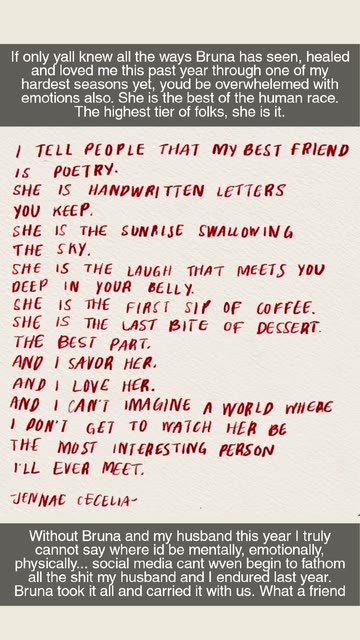 If only yall knew all the ways Bruna has seen, healed
and loved me this past year through one of my
hardest seasons yet, youd be overwhelemed with
emotions also. She is the best of the human race.
The highest tier of folks, she is it.
I TELL PEOPLE THAT MY BEST FRIEND
IS POETRY.
SHE IS HANDWRITTEN LETTERS
YOU KEEP.
SHE IS THE SUNRISE SWALLOWING
THE SKY.
SHE IS THE LAUGH THAT MEETS YOU
DEEP IN YOUR BELLY.
SHE IS THE FIRST SIP OF COFFEE.
SHE IS THE LAST BITE OF DESSERT.
THE BEST PART.
AND I SAVOR HER.
AND I LOVE HER.
AND I CAN'T IMAGINE A WORLD WHERE
I DON'T GET TO WATCH HER BE
THE MOST INTERESTING PERSON
I'LL EVER MEET.
-JENNAE CECELIA-
Without Bruna and my husband this year I truly
cannot say where id be mentally, emotionally,
physically... social media cant wven begin to fathom
all the shit my husband and I endured last year.
Bruna took it all and carried it with us. What a friend